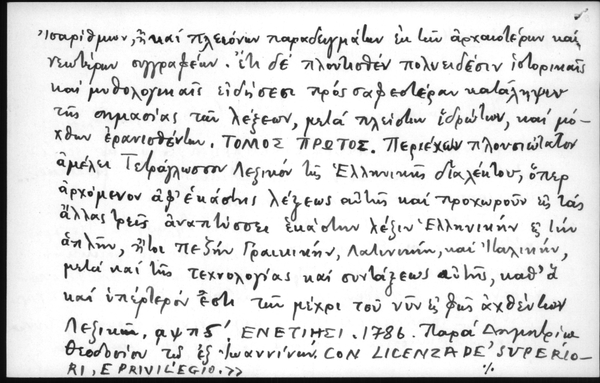 Ἰσαρίθμων, ἢ καί πλειόνων παραδειγμάτων ἐκ τῶν ἀρχαιοτέρων καί
νεωτέρων συγγραφέων. Ἔτι δέ πλουτισθέν πολυειδέσιν ἱστορικαῖς
καί μυθολογικαῖς εἰδήσεσι πρός σαφεστέραν κατάληψιν
τῆς σημασίας τῶν λέξεων, μετά πλείστων ἱδρώτων, καί μό-
χθων ἐρανισθέντων. ΤΟΜΟΣ ΠΡΩΤΟΣ. Περιέχων πλουσιώτατον
ἀμέλει Τετράγλωσσον Λεξικόν τῆς Ἑλληνικῆς διαλέκτου, ὅπερ
ἀρχόμενον ἀφ' ἑκάστης λέξεως αὐτῆς καί προχωροῦν εἰς τάς
ἄλλας τρεῖς ἀναπτύσσει ἑκάστην λέξιν Ἑλληνικήν εἰς τήν
ἁπλῆν, ἤτοι πεζήν Γραικικήν, Λατινικήν, καί Ἰταλικήν,
μετά καί τῆς τεχνολογίας καί συντάξεως αὐτῆς, καθ' ἅ
καί ὑπέρτερόν ἐστι τῶν μέχρι τοῦ νῦν εἰς φῶς ἀχθέντων
Λεξικῶν. αψπς' ΕΝΕΤΙΗΣΙ. 1786. Παρά Δημητρίῳ
Θεοδοσίου τῷ ἐξ Ἰωαννίνων. CON LICENZA DE' SUPERIO-
RI, E PRIVILEGIO.>>